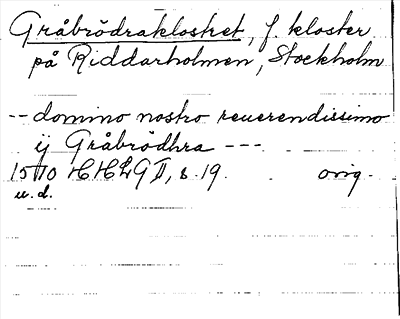 Gråbrödraklostret, f. kloster
på Riddarholmen, Stockholm
-- domino nostro reuerendissimo
ij Gråbrödhra ---
1510 HHLG II, s. 19. orig.
u. d.